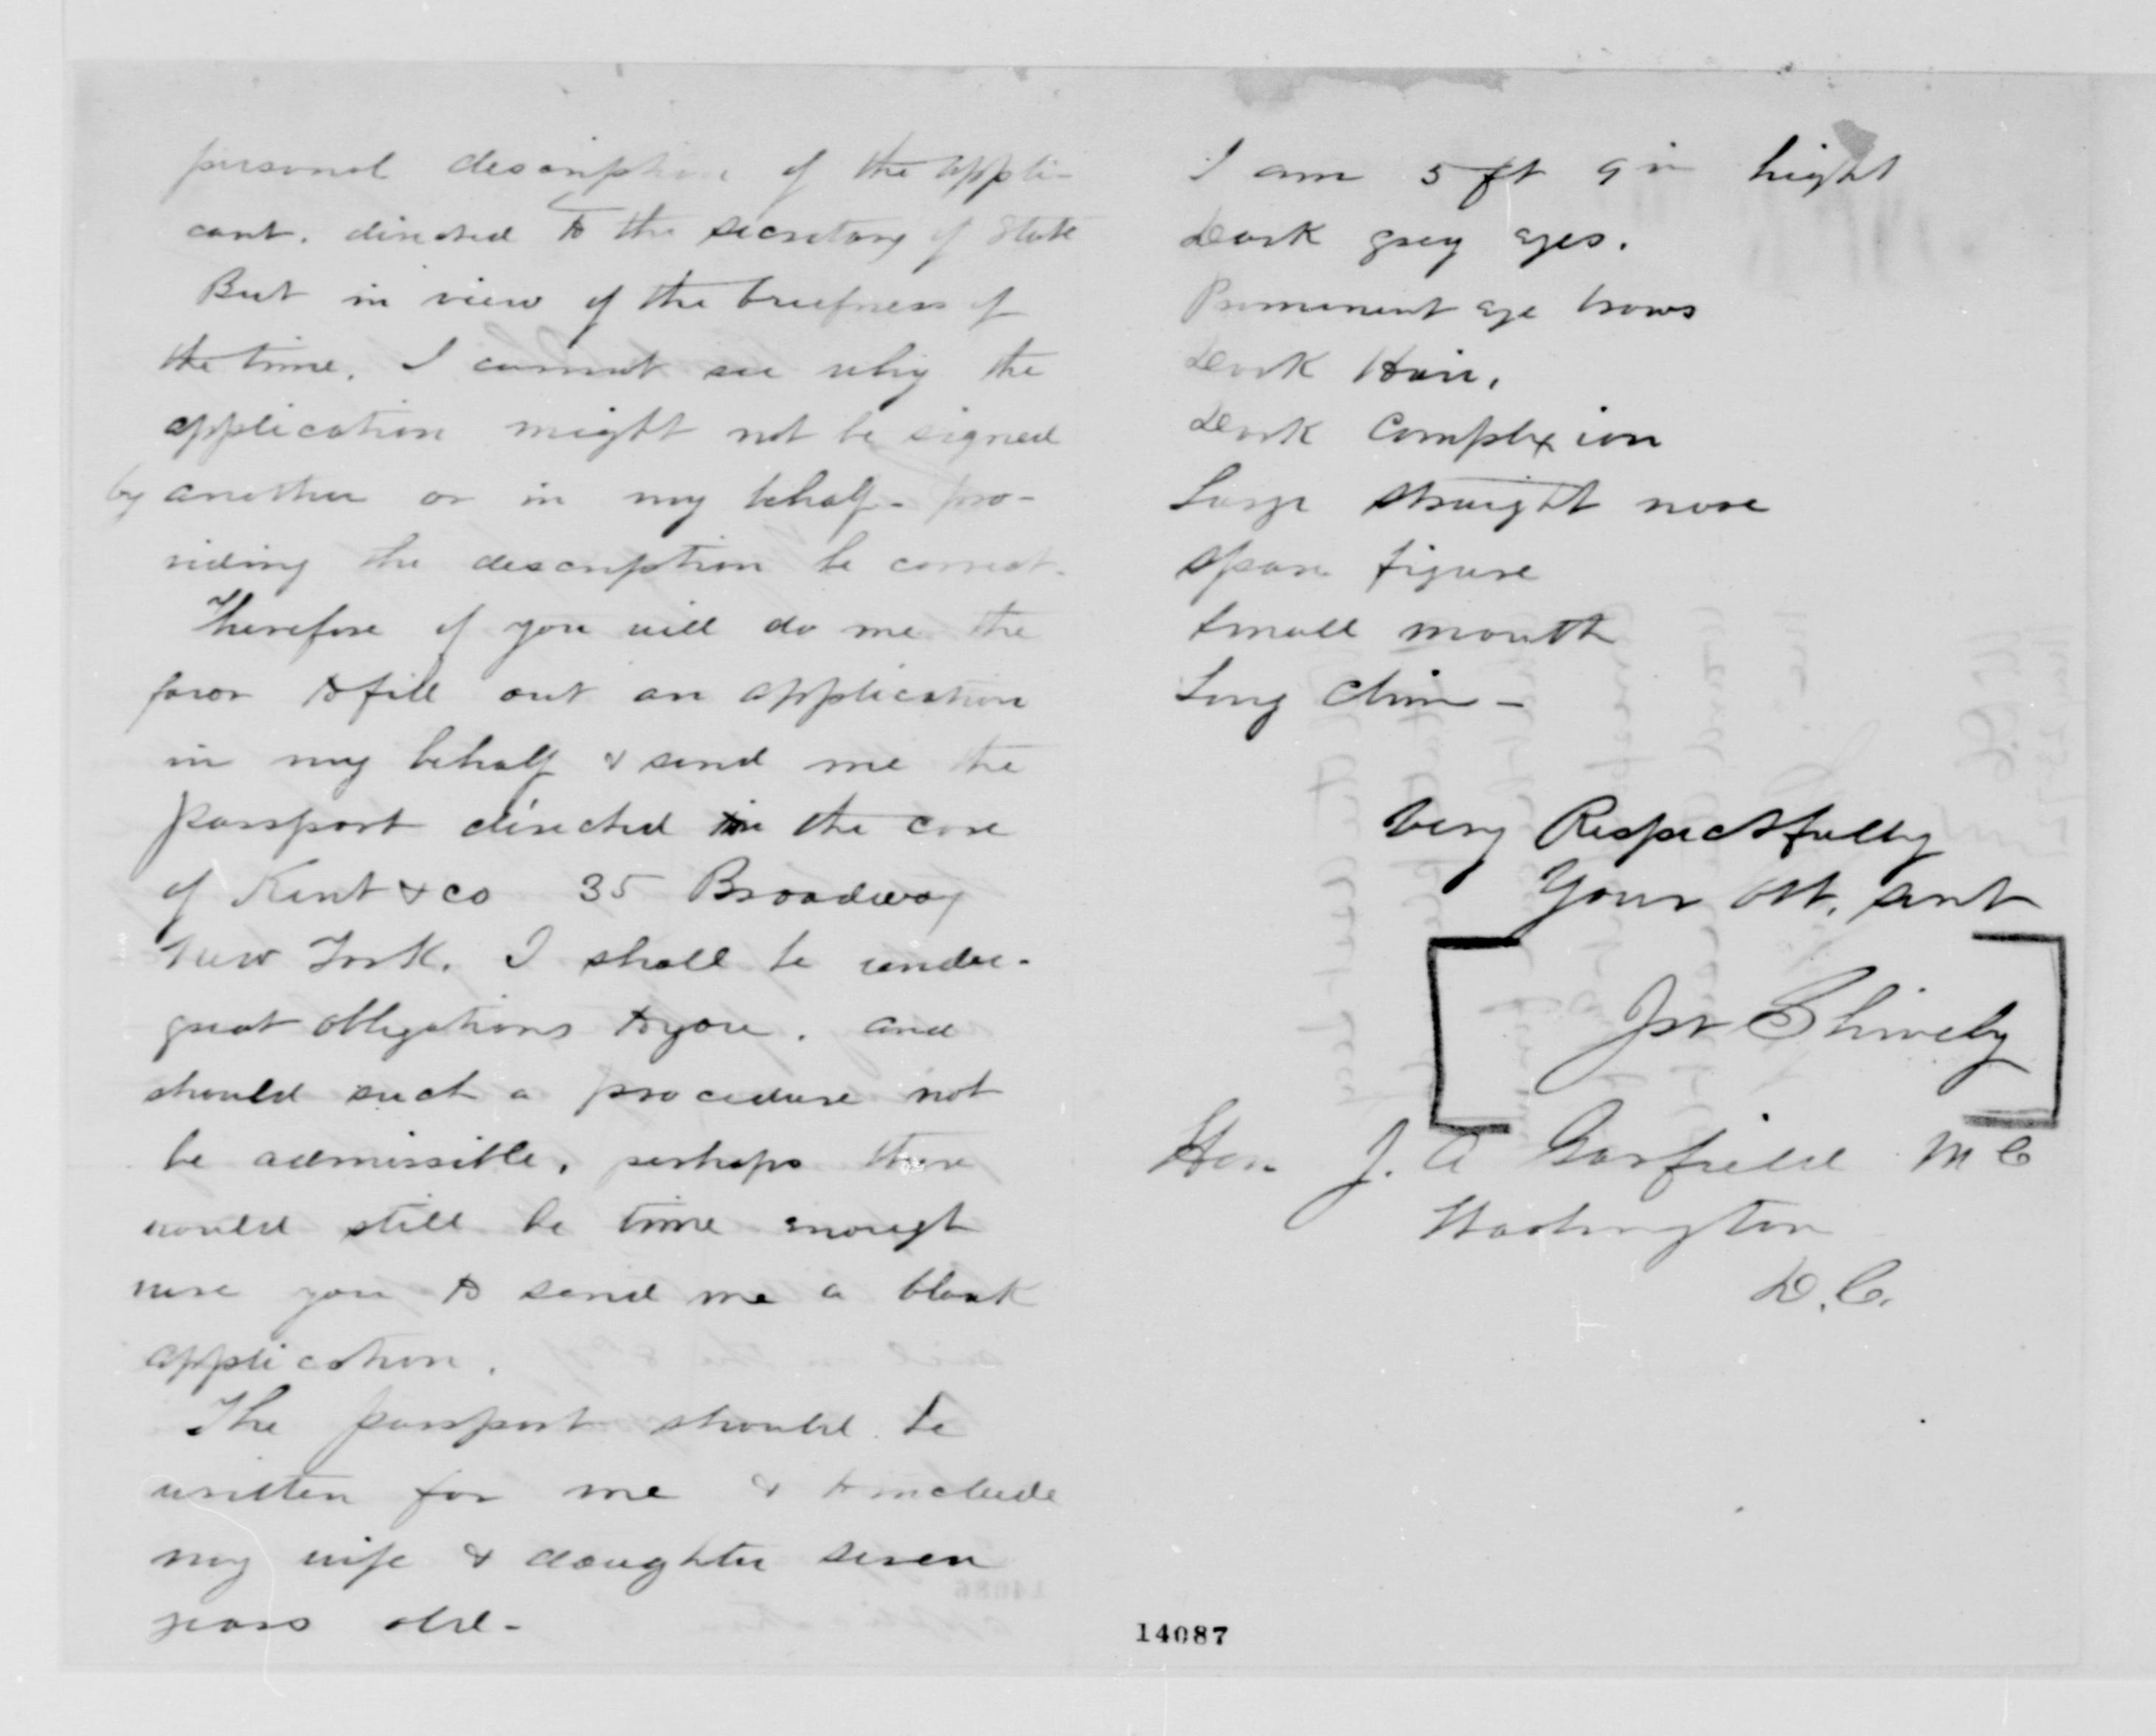 personal description of the appli-
cant. directed to the secretary of State
But in view of the briefness of
the time. I cannot see why the
application might not be signed
by another or in my behalf - pro-
viding the description be correct.
Therefore if you will do me the
favor to fill out an application
in my behalf & send me the
passport directed in the care
of Kent & co 35 Broadway
New York. I shall be under
great obligations to you. and
should such a procedure not
be admissible, perhaps there
would still be time enough
were you to send me a blank
application.
The passport should be
written for me & to include
my wife & daughter seven
years old -
I am 5 ft 9 in hight
Dark grey eyes.
Prominent eye brows
Dark Hair.
Dark Complexion
Large straight nose
spare figure
Small mouth
Long chin -
Very Respectfully
Your obt. servt
Shively
Hon. J. A Garfield M C
Washington
D. C.
14087